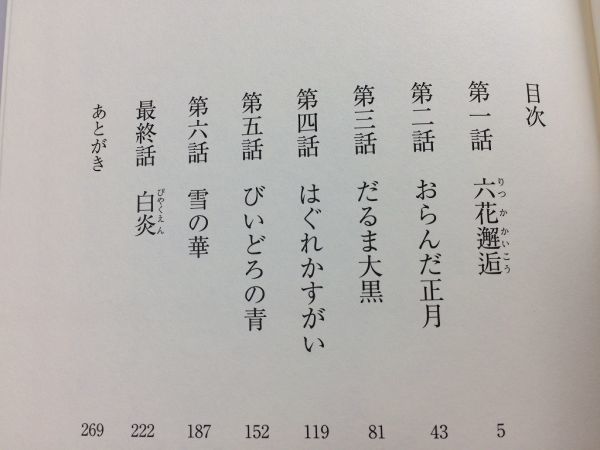 目次
第一話 六花邂逅 5
りつ か かいこう
第二話 おらんだ正月 43
第三話 だるま大黒 81
第四話 はぐれかすがい 119
第五話 びいどろの青 152
第六話 雪の華 187
最終話 白炎 222
びやくえん
あとがき 269